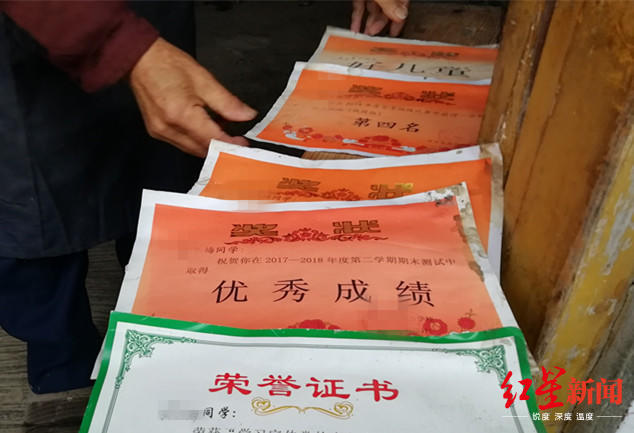 好儿童
奖 状
第四名
奖 状
奖 状
同学
祝贺你在2017—2018年度第二学期期末测试中
取得
优秀成绩
荣誉证书
同学：
红星新闻
锐度 深度 温度